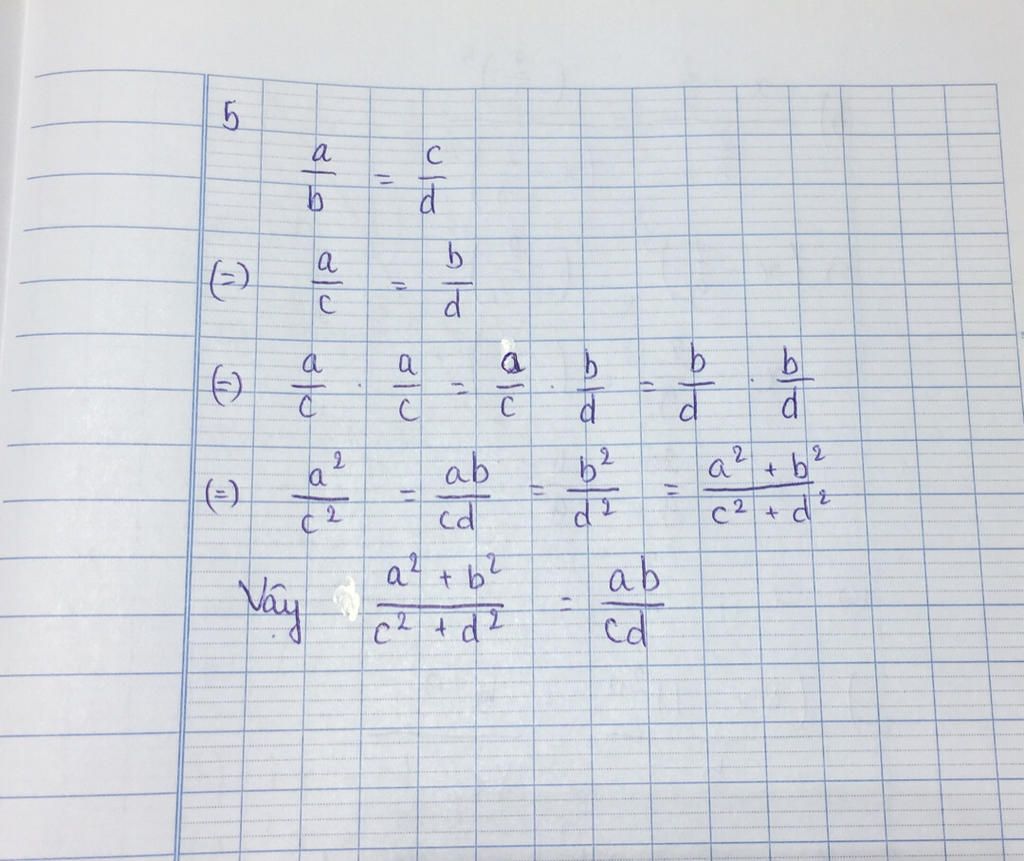 5
a/b = c/d
(=) a/c = b/d
(=) a/c . a/c = a/c . b/d = b/d . b/d
(=) a²/c² = ab/cd = b²/d² = a² + b²/c² + d²
Vậy a² + b²/c² + d² = ab/cd